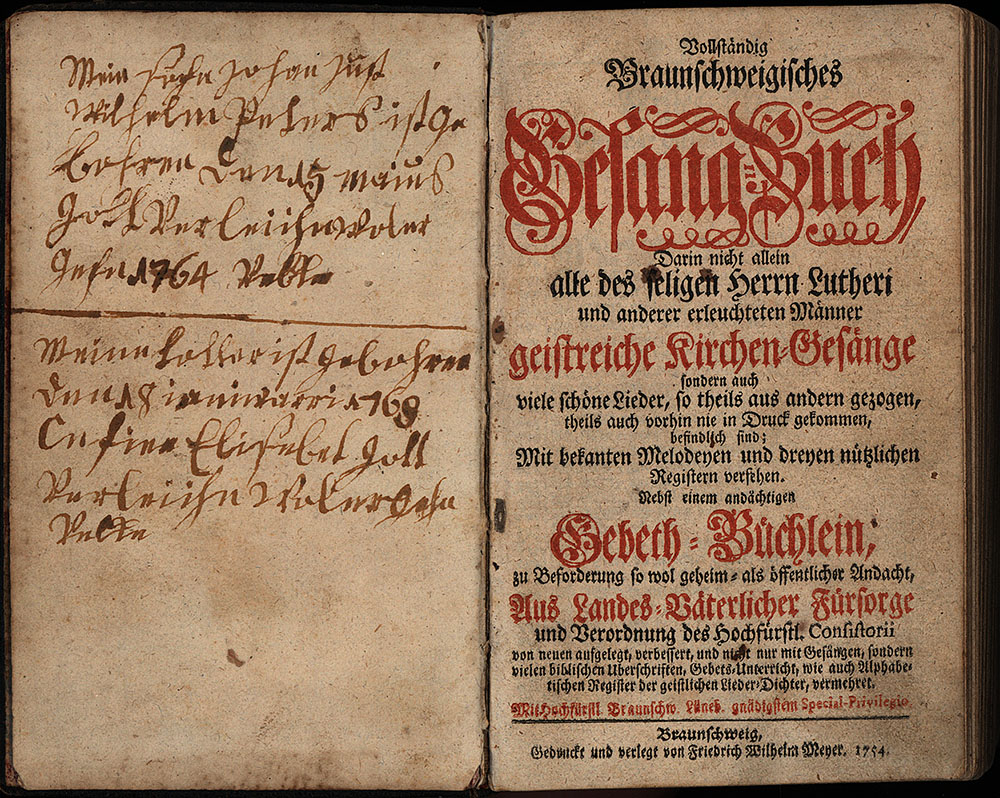 Mein sohn Johan Just
Wilhelm Peters ist ge
bohren den 15 maius
Gott Verleich
1764
Meine ist gebohren
den 18 1768
Elisebet Gott
Verleihe
Vollständig
Braunschweigisches
Gesang-Buch,
Darin nicht allein
alle des seligen Herrn Lutheri
und anderer erleuchteten Männer
geistreiche Kirchen-Gesänge
sondern auch
viele schöne Lieder, so theils aus andern gezogen,
theils auch vorhin nie in Druck gekommen,
befindlich sind;
Mit bekanten Melodeyen und dreyen nützlichen
Registern versehen.
Nebst einem andächtigen
Gebeth-Büchlein,
zu Beforderung so wol geheim- als öffentlicher Andacht,
Aus Landes-Väterlicher Fürsorge
und Verordnung des Hochfürstl. Consistorii
von neuen aufgelegt, verbessert, und nicht nur mit Gesängen, sondern
vielen biblischen Uberschriften, Gebets-Unterricht, wie auch Alphabe-
tischen Register der geistlichen Lieder-Dichter, vermehret.
Mit Hochfürstl. Braunschw. Lüneb. gnädigstem Special-Privilegio
Braunschweig,
Gedruckt und verlegt von Friedrich Wilhelm Meyer. 1754.